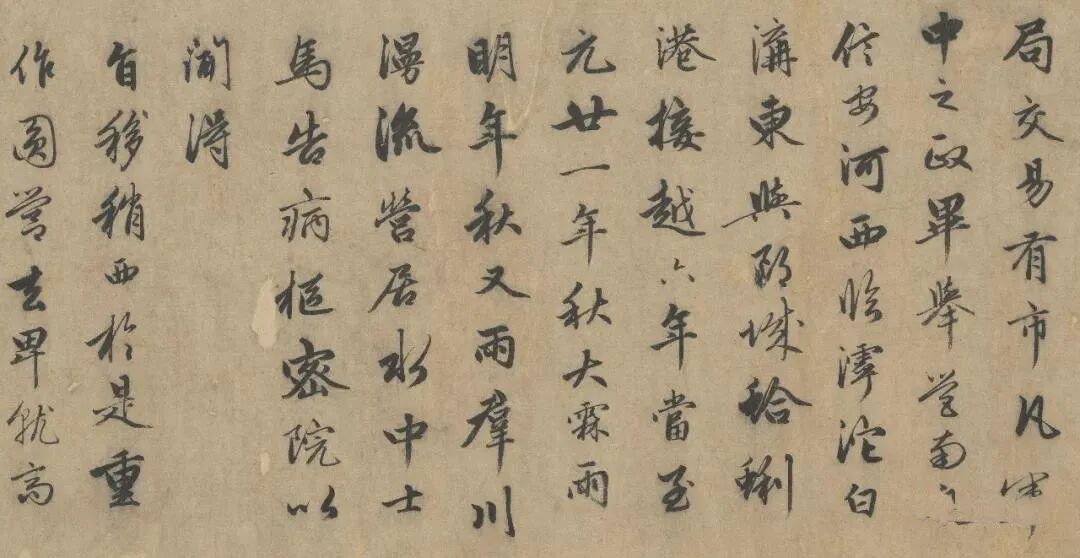 局交易有市凡軍
中之政畢舉營南之
信安河西臨滹沱白
溝東與郎城蛤蜊
港接越六年當至
元廿一年秋大霖雨
明年秋又雨羣川
漫流營居水中士
馬告病樞密院以
聞得
旨移稍西於是重
作圓營去卑就高